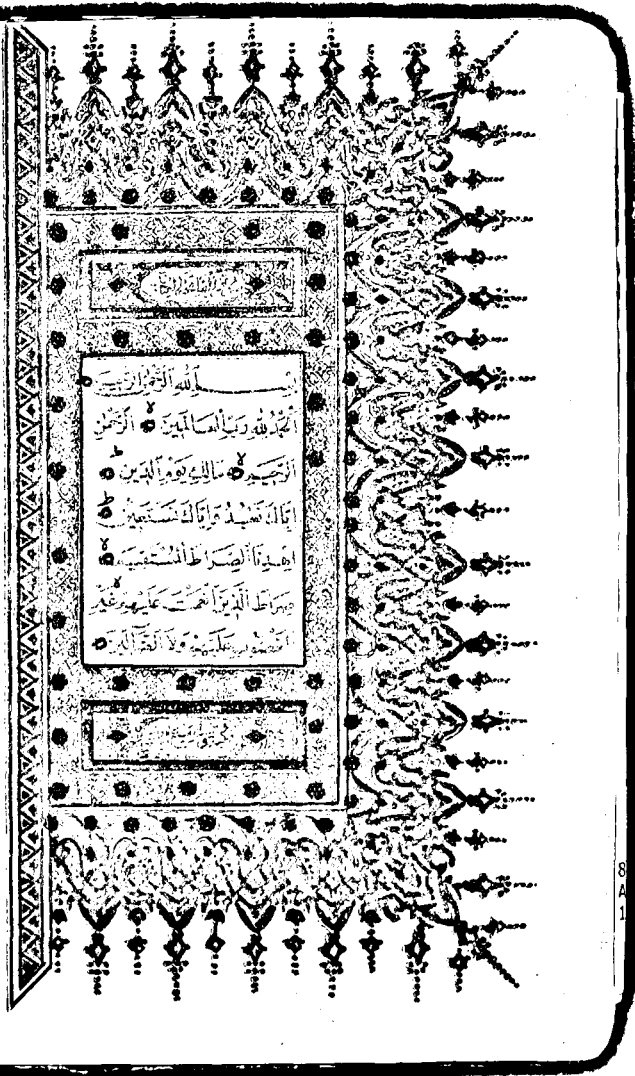 بسم الله الرحمن الرحيم
الحمد لله رب العالمين الرحمن
الرحيم مالك يوم الدين
اياك نعبد واياك نستعين
اهدنا الصراط المستقيم
صراط الذين انعمت عليهم غير
المغضوب عليهم ولا الضالين
8
A
1